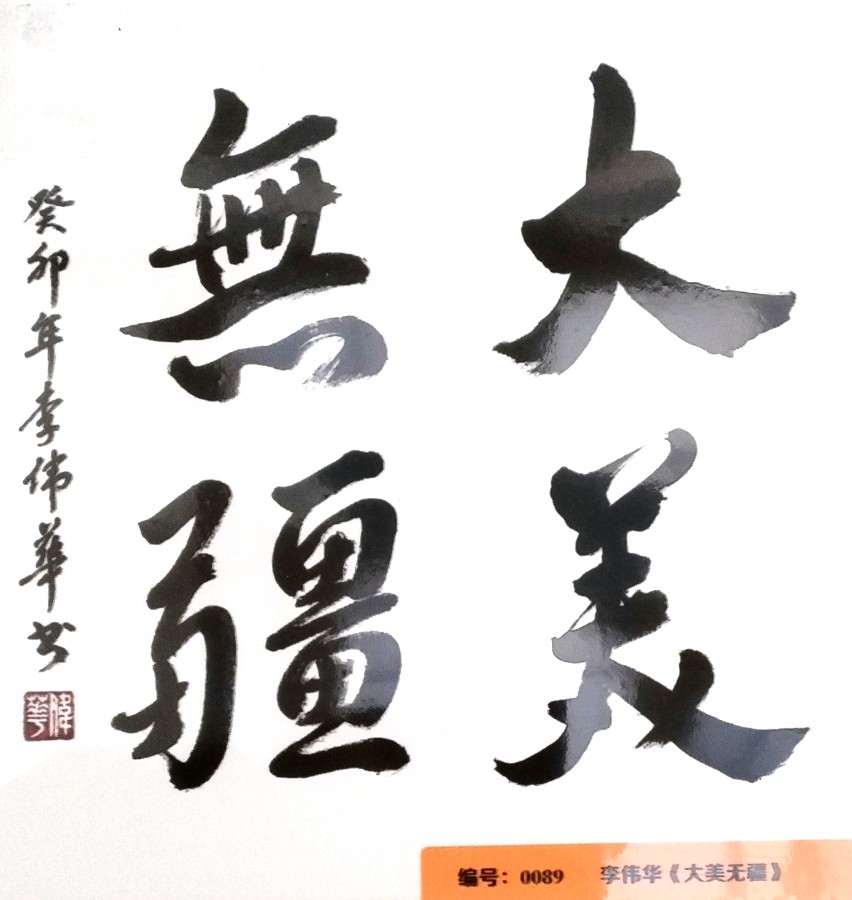 大美
無疆
癸卯年李伟華书
偉華
编号：0089 李伟华《大美无疆》